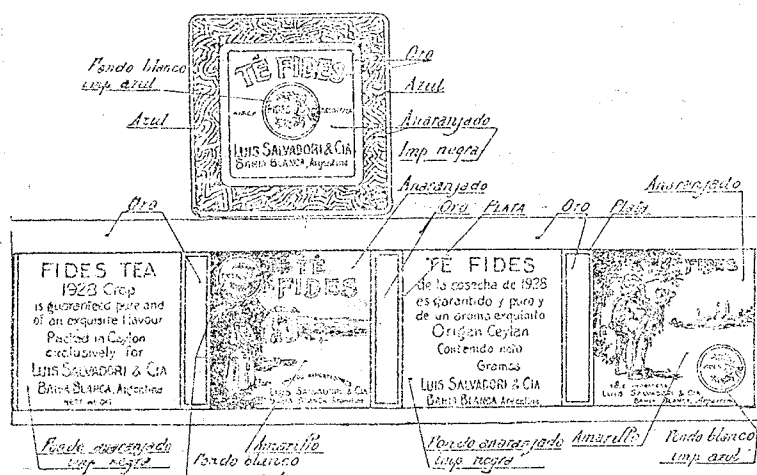 Oro
Fondo blanco
imp azul
Azul
Azul
Anaranjado
Imp negra
TÉ FIDES
FIDES
LUIS SALVADORI & CIA
BAHIA BLANCA, Argentina
Oro
Anaranjado
Oro
PLATA
Oro
Plata
Anaranjado
FIDES TEA
1928 Crop
is guaranteed pure and
of an exquisite flavour
Packed in Ceylon
exclusively for
LUIS SALVADORI & CIA
BAHIA BLANCA, Argentina
TÉ
FIDES
LUIS SALVADORI & CIA
BAHIA BLANCA, Argentina
TÉ FIDES
de la cosecha de 1928
es garantido y puro y
de un aroma exquisito
Origen Ceylan
Contenido neto
Gramos
LUIS SALVADORI & CIA
BAHIA BLANCA, Argentina
FIDES
LUIS SALVADORI & CIA
BAHIA BLANCA, Argentina
Fondo anaranjado
imp negra
Fondo blanco
Amarillo
Fondo anaranjado
imp negra
Amarillo
Fondo blanco
imp azul